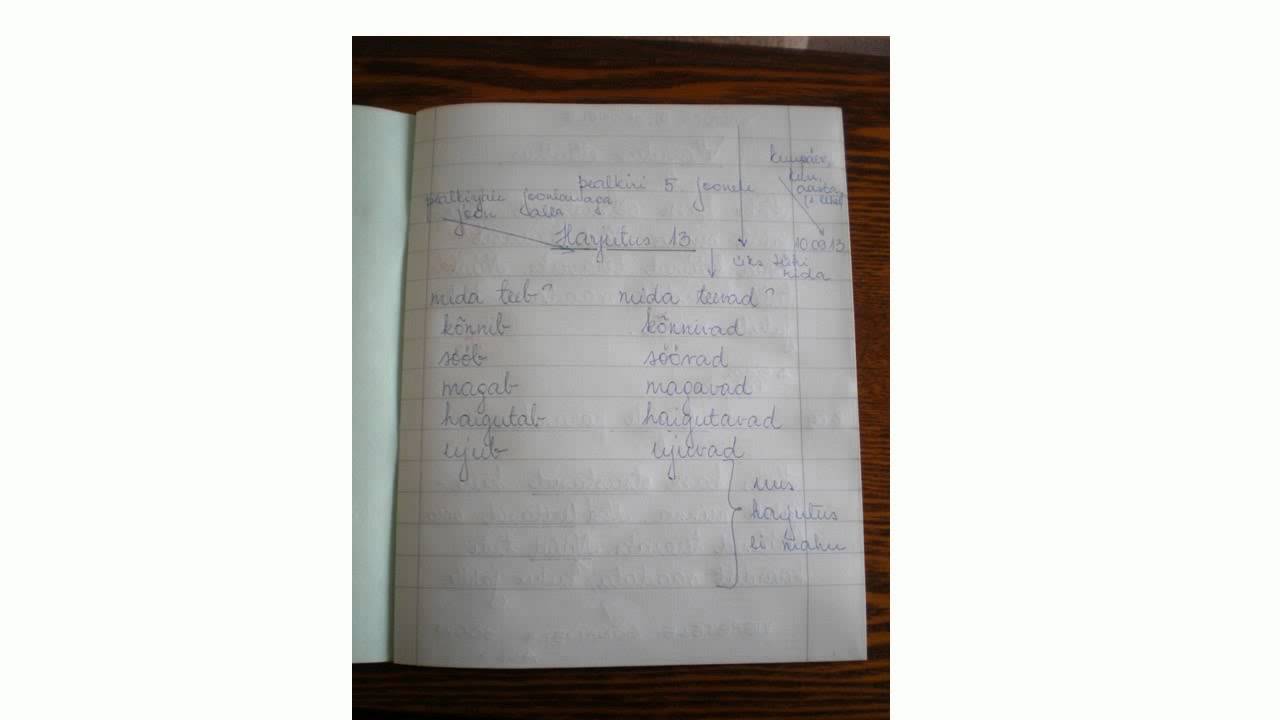 kuupäev,
kuu,
aasta
pealkiri 5. joonele
pealkirjale joonlauaga
joon alla
Harjutus 13
10.09.13
üks tühi
rida
mida teeb? mida teevad?
kõnnib kõnnivad
sööb söövad
magab magavad
haigutab haigutavad
ujub ujuvad
uus
harjutus
ei mahu